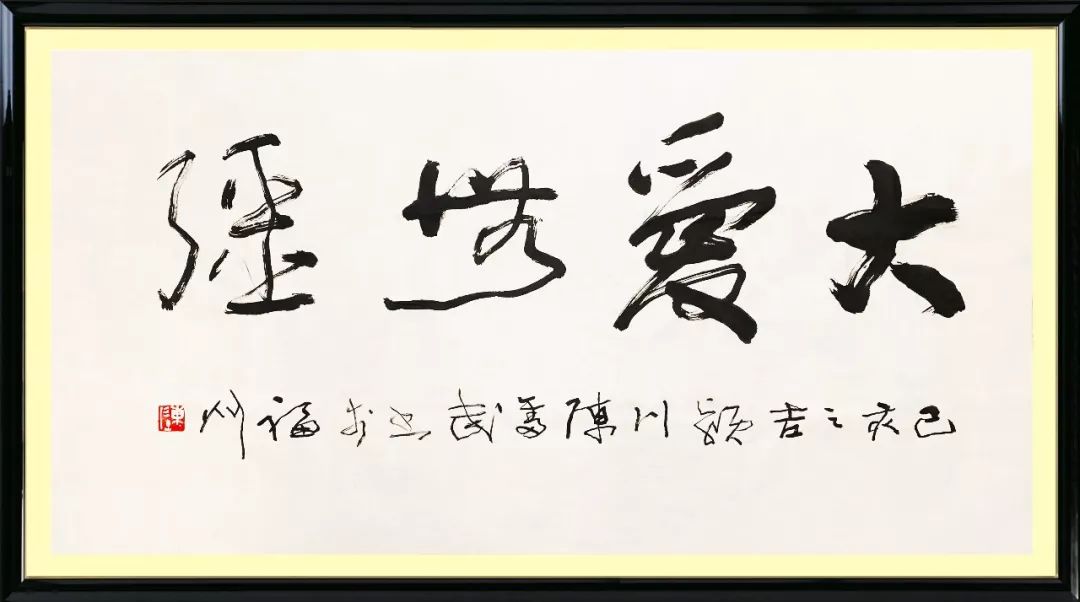 大愛無疆
己亥之吉潁川陳奮武書於福州
陳